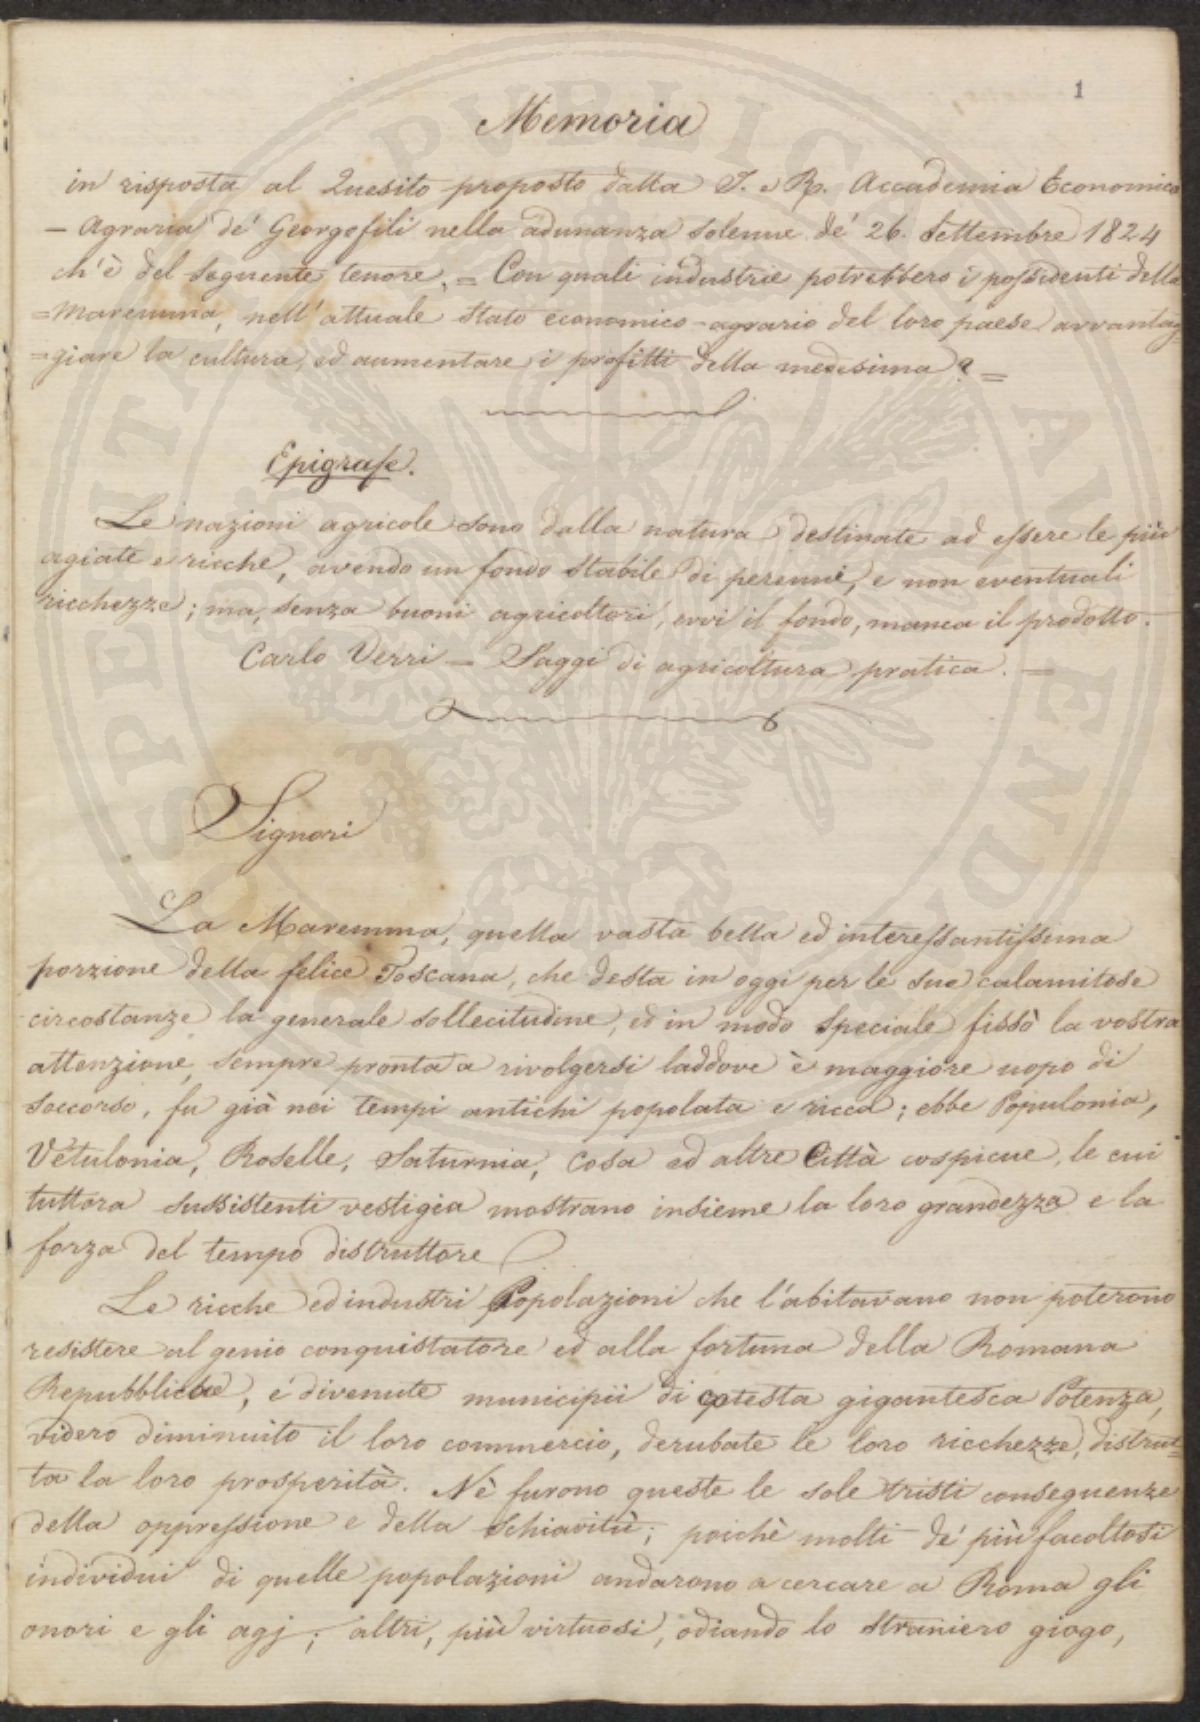 1
Memoria
in risposta al Quesito proposto dalla I. e R. Accademia Economico
- Agraria de' Georgofili nella adunanza solenne de' 26. Settembre 1824
ch'è del seguente tenore. = Con quali industrie potrebbero i possidenti della
= Maremma, nell'attuale stato economico-agrario del loro paese avvantag=
=giare la cultura, ed aumentare i profitti della medesima? =
Epigrafe.
Le nazioni agricole sono dalla natura destinate ad essere le più
agiate e ricche, avendo un fondo stabile di perenni, e non eventuali
ricchezze; ma, senza buoni agricoltori, evvi il fondo, manca il prodotto.
Carlo Verri = Saggi di agricoltura pratica. =
Signori
La Maremma, quella vasta bella ed interessantissima
porzione della felice Toscana, che desta in oggi per le sue calamitose
circostanze la generale sollecitudine, ed in modo speciale fissò la vostra
attenzione, sempre pronta a rivolgersi laddove è maggiore uopo di
soccorso, fu già nei tempi antichi popolata e ricca; ebbe Populonia,
Vetulonia, Roselle, Saturnia, Cosa ed altre Città cospicue, le cui
tuttora sussistenti vestigia mostrano insieme la loro grandezza e la
forza del tempo distruttore.
Le ricche ed industri Popolazioni che l'abitavano non poterono
resistere al genio conquistatore ed alla fortuna della Romana
Repubblica, e divenute municipii di cotesta gigantesca Potenza,
videro diminuito il loro commercio, derubate le loro ricchezze, distrut=
ta la loro prosperità. Nè furono queste le sole tristi conseguenze
della oppressione e della schiavitù; poichè molti de' più facoltosi
individui di quelle popolazioni andarono a cercare a Roma gli
onori e gli agj; altri, più virtuosi, odiando lo straniero giogo,